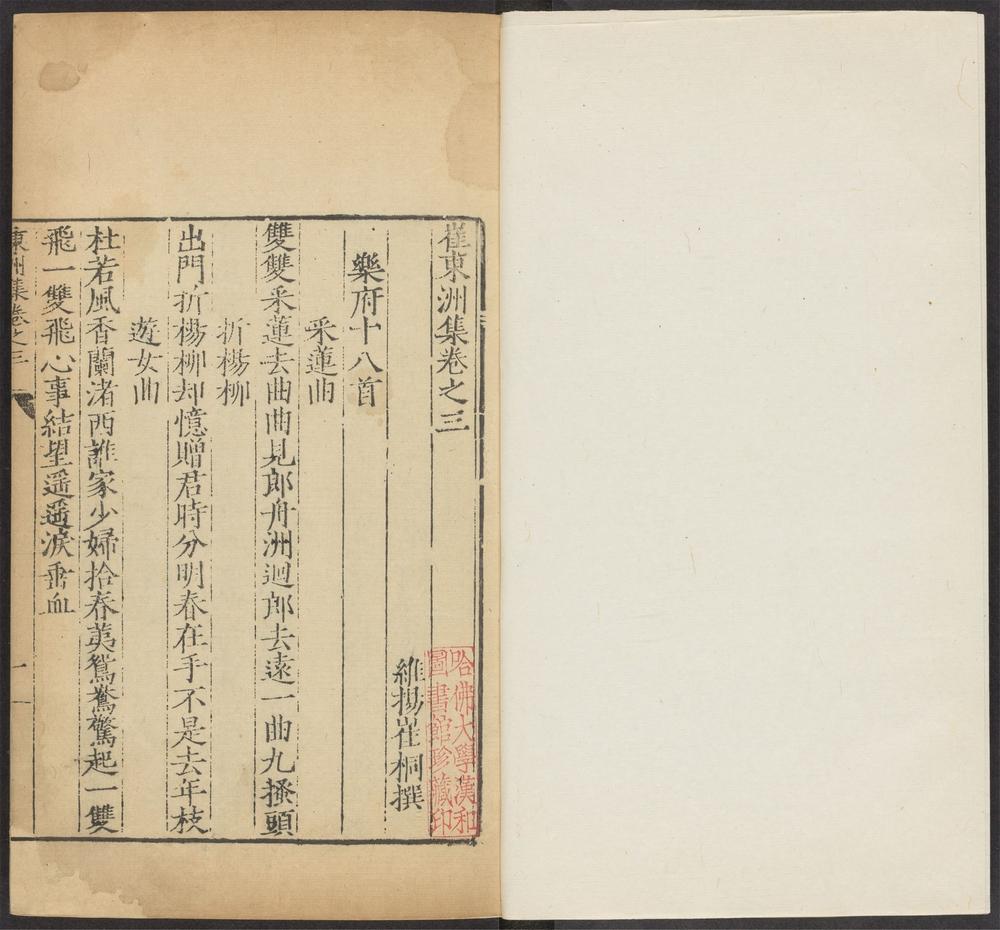 崔東洲集卷之三
維揚崔桐撰
樂府十八首
采蓮曲
雙雙采蓮去曲曲見郎舟洲迴郎去遠一曲九搔頭
折楊柳
出門折楊柳却憶贈君時分明春在手不是去年枝
遊女曲
杜若風香蘭渚西誰家少婦拾春荑鴛鴦驚起一雙
飛一雙飛心事結望遥遥淚垂血
東洲集卷之三
一
哈佛大學漢和
圖書館珍藏印